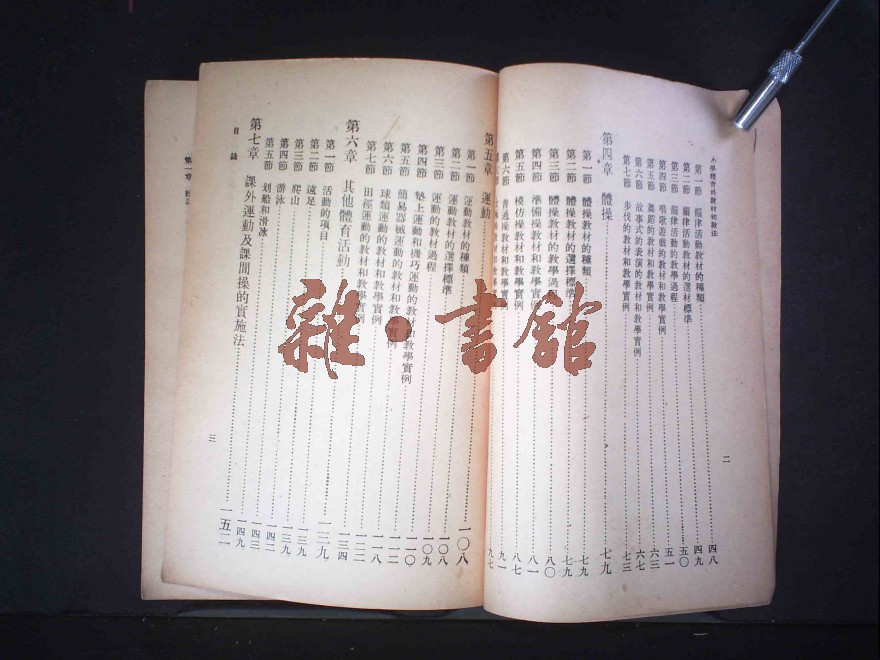 小學體育科教材和敎法
第一節　韻律活動教材的種類 四八
第二節　韻律活動教材的選材標準 四九
第三節　韻律活動的教學過程 五〇
第四節　唱歌遊戲的教材和教學實例 五一
第五節　舞蹈的教材和教學實例 六三
第六節　故事式的表演的教材和教學實例 六七
第七節　步伐的教材和教學實例 七三
第四章　體操 七九
第一節　體操教材的種類 七九
第二節　體操教材的選擇標準 七九
第三節　體操教材的教學過程 八〇
第四節　準備操教材和教學實例 八一
第五節　模仿操教材和教學實例 八七
第六節　普通操教材和教學實例 九一
九七
二
第五章　運動 一〇八
第一節　運動教材的種類 一〇八
第二節　運動教材的選擇標準 一〇八
第三節　運動的教材過程 一〇九
第四節　墊上運動和機巧運動的教材和教學實例 一一〇
第五節　簡易器械運動的教材和教學實例 一一二
第六節　球類運動的教材和教學實例 一一八
第七節　田徑運動的教材和教學實例 一二二
第六章　其他體育活動 一三四
第一節　活動的項目 一三九
第二節　遠足 一三九
第三節　爬山 一三九
第四節　游泳 一四二
第五節　划船和滑冰 一四三
一四九
第七章　課外運動及課間操的實施法 一五二
目錄
三
第一章
雜·書館